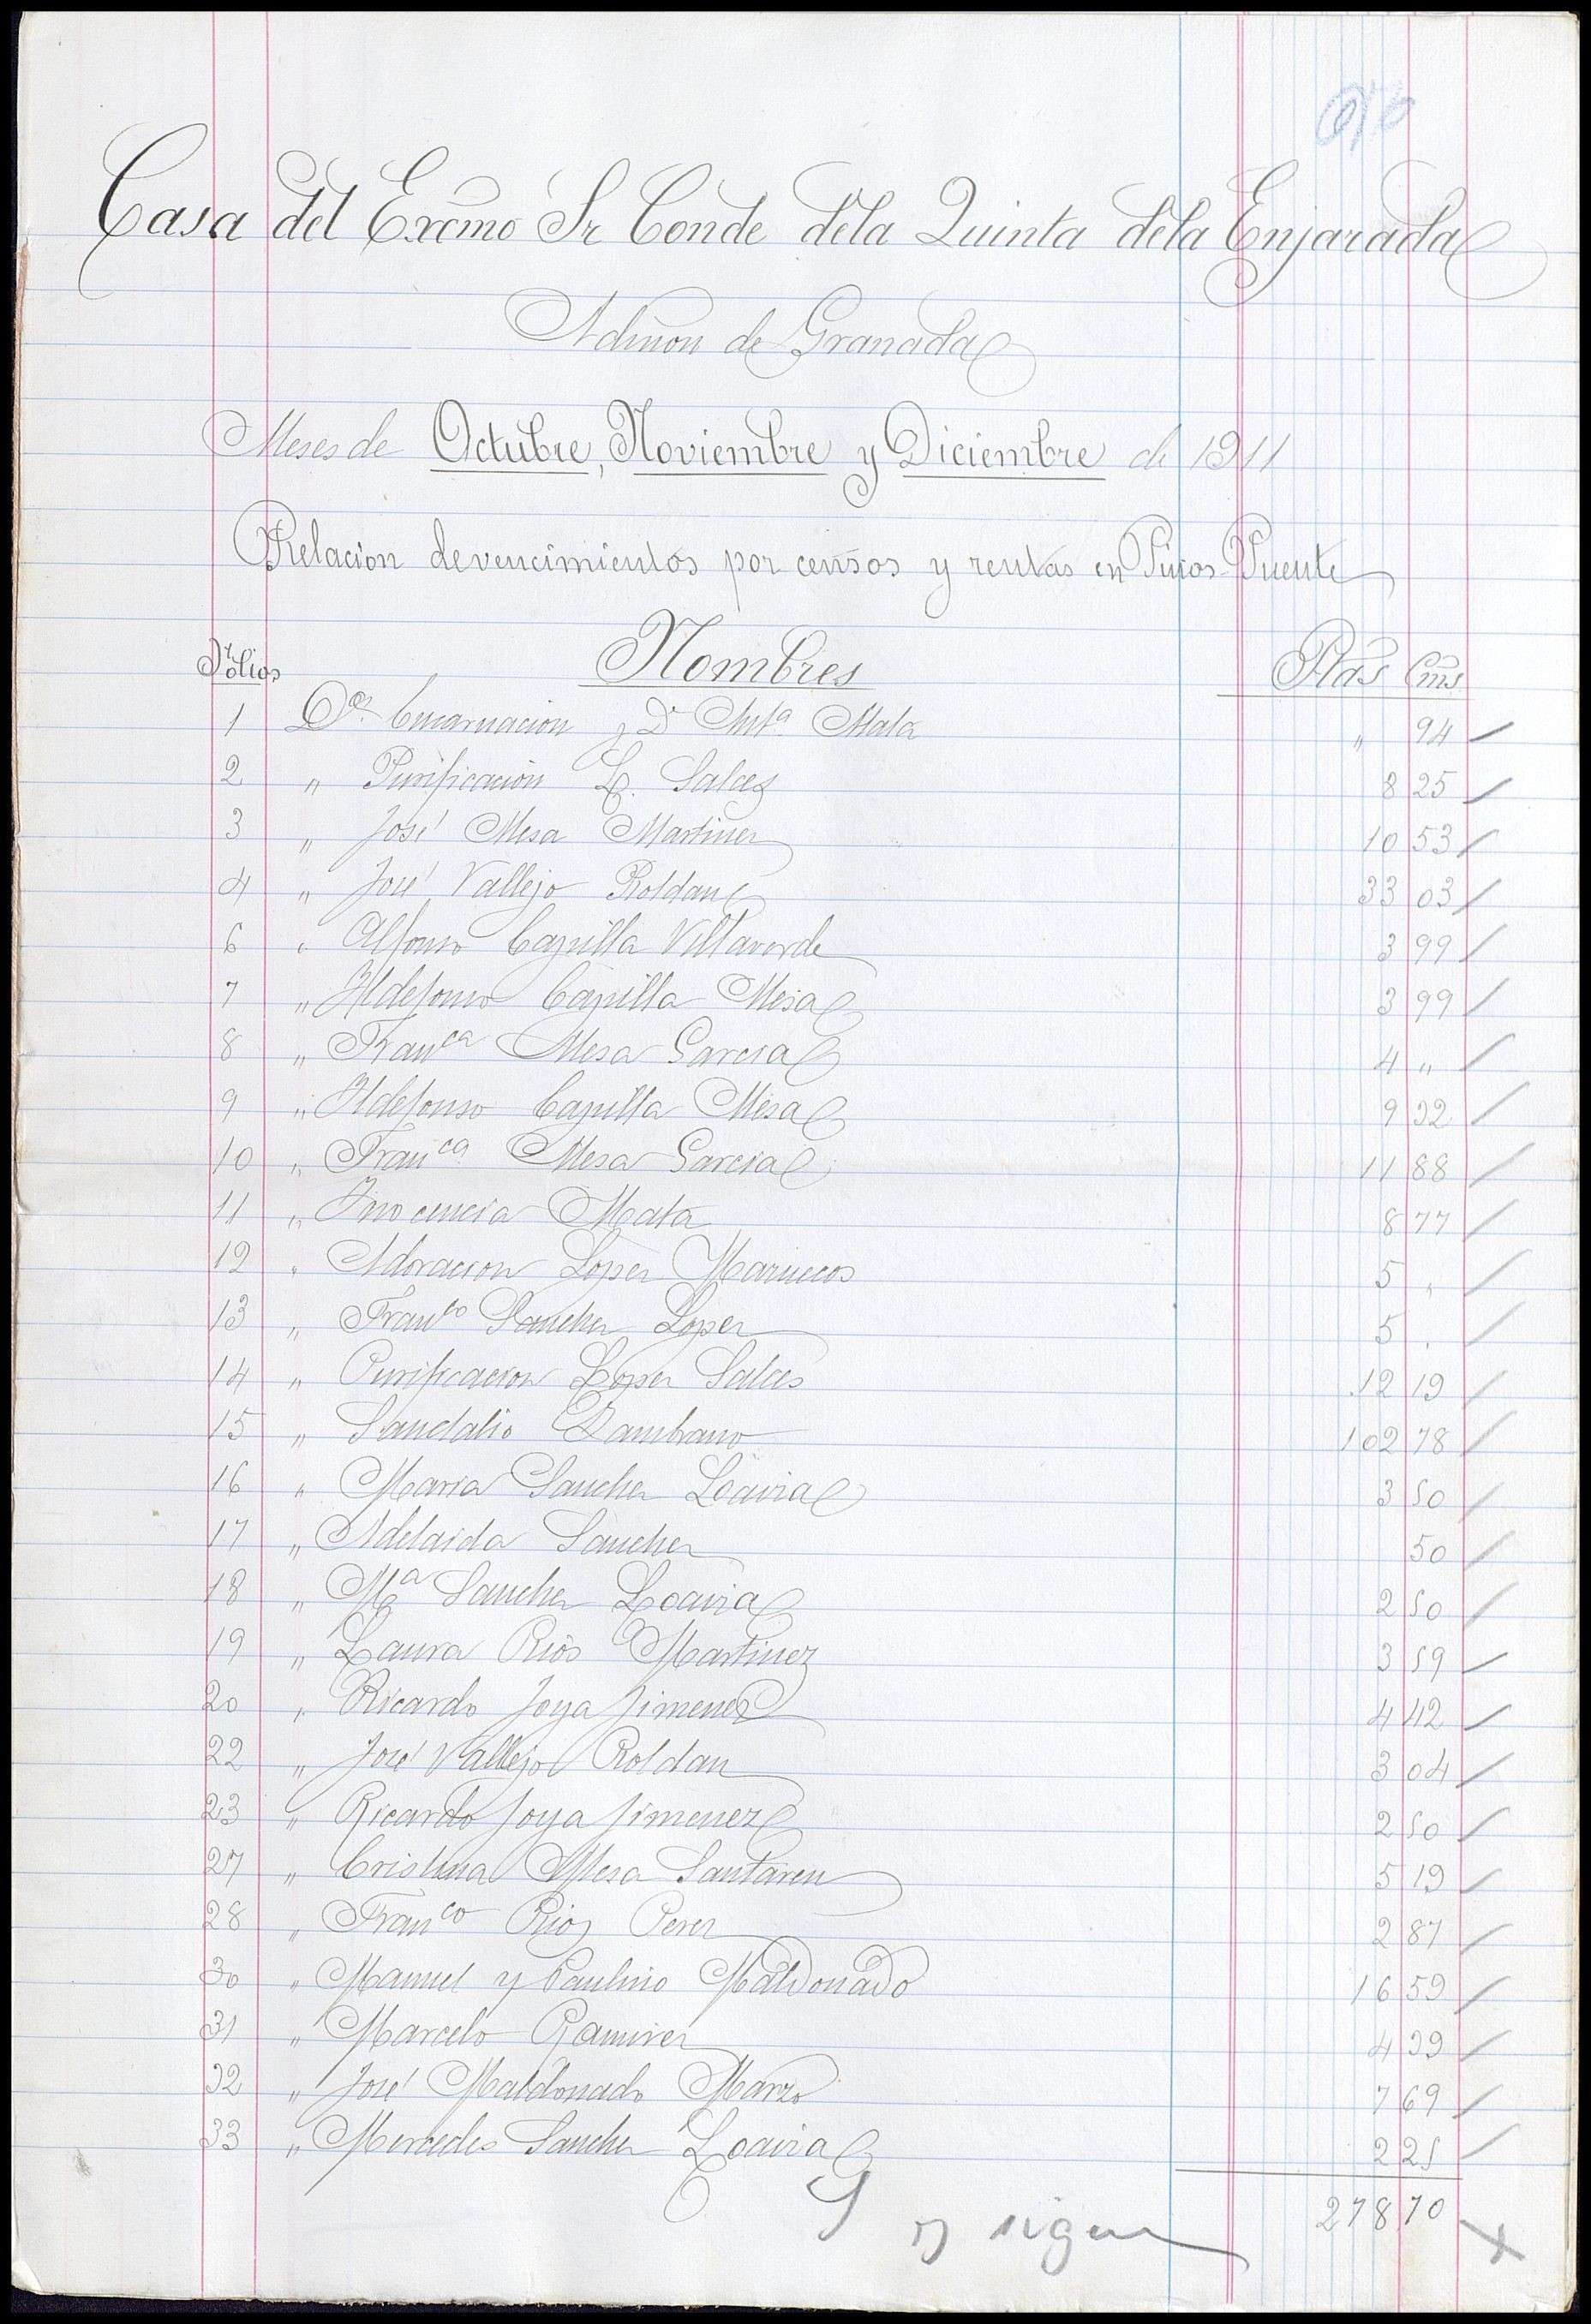 Casa del Excmo Sr Conde dela Quinta dela Enjarada
Admon de Granada
Meses de Octubre, Noviembre y Diciembre de 1911
Relacion de vencimientos por censos y rentas en Pinos Puente
Folios Nombres Ptas Cms
1 Dª Encarnacion y Dª Antª Mata " 94
2 " Purificacion L. Salces 8 25
3 " José Mesa Martinez 10 53
4 " José Vallejo Roldan 33 03
6 " Alfonso Capilla Villaverde 3 99
7 " Ildefonso Capilla Mesa 3 99
8 " Franca Mesa Garcia 4 "
9 " Ildefonso Capilla Mesa 9 32
10 " Franca Mesa Garcia 11 88
11 " Inocencia Mata 8 77
12 " Adoracion Lopez Marruecos 5 "
13 " Franco Sanchez Lopez 5 "
14 " Purificacion Lopez Salces 12 19
15 " Sandalio Zambrano 102 78
16 " Maria Sanchez Loaiza 3 50
17 " Adelaida Sanchez 50
18 " Mª Sanchez Loaiza 2 50
19 " Laura Rios Martinez 3 59
20 " Ricardo Joya Jimenez 4 42
22 " José Vallejo Roldan 3 04
23 " Ricardo Joya Jimenez 2 50
27 " Cristina Mesa Santaren 5 19
28 " Franco Rios Perez 2 87
30 " Manuel y Paulino Maldonado 16 59
31 " Marcelo Ramirez 4 39
32 " José Maldonado Marzo 7 69
33 " Mercedes Sanchez Loaiza 2 25
278 70
y sigue